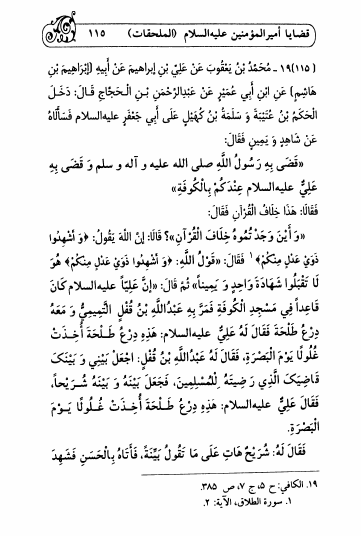 قضایا أمیرالمؤمنین علیه‌السلام (الملحقات) ۱۱۵
(۱۱۵) ۱۹ ـ مُحَمَّدُ بْنُ یَعْقُوبَ عَنْ عَلِيِّ بْنِ إِبْرَاهِیمَ عَنْ أَبِیهِ (إِبْرَاهِیمَ بْنِ
هَاشِمٍ) عَنِ ابْنِ أَبِي عُمَیْرٍ عَنْ عَبْدِالرَّحْمٰنِ بْنِ الْحَجَّاجِ قَالَ: دَخَلَ
الْحَكَمُ بْنُ عُتَیْبَةَ وَ سَلَمَةُ بْنُ كُهَیْلٍ عَلَی أَبِي جَعْفَرٍ علیه‌السلام فَسَأَلَاهُ
عَنْ شَاهِدٍ وَ یَمِینٍ فَقَالَ:
«قَضَی بِهِ رَسُولُ اللَّهِ صلی الله علیه و آله و سلم وَ قَضَی بِهِ
عَلِيٌّ علیه‌السلام عِنْدَكُمْ بِالْكُوفَةِ»
فَقَالَا: هَذَا خِلَافُ الْقُرْآنِ فَقَالَ:
«وَ أَیْنَ وَجَدْتُمُوهُ خِلَافَ الْقُرْآنِ»؟ قَالَا: إِنَّ اللَّهَ یَقُولُ: ﴿وَ أَشْهِدُوا
ذَوَيْ عَدْلٍ مِنْكُمْ﴾۱ فَقَالَ: «قَوْلُ اللَّهِ: ﴿وَ أَشْهِدُوا ذَوَيْ عَدْلٍ مِنْكُمْ﴾ هُوَ
لَا تَقْبَلُوا شَهَادَةَ وَاحِدٍ وَ یَمِیناً» ثُمَّ قَالَ: «إِنَّ عَلِیّاً علیه‌السلام كَانَ
قَاعِداً فِي مَسْجِدِ الْكُوفَةِ فَمَرَّ بِهِ عَبْدُاللَّهِ بْنُ قُفْلٍ التَّمِیمِيُّ وَ مَعَهُ
دِرْعُ طَلْحَةَ فَقَالَ لَهُ عَلِيٌّ علیه‌السلام: هَذِهِ دِرْعُ طَلْحَةَ أُخِذَتْ
غُلُولًا یَوْمَ الْبَصْرَةِ، فَقَالَ لَهُ عَبْدُاللَّهِ بْنُ قُفْلٍ: اجْعَلْ بَیْنِي وَ بَیْنَكَ
قَاضِیَكَ الَّذِي رَضِیتَهُ لِلْمُسْلِمِینَ، فَجَعَلَ بَیْنَهُ وَ بَیْنَهُ شُرَیْحاً،
فَقَالَ عَلِيٌّ علیه‌السلام: هَذِهِ دِرْعُ طَلْحَةَ أُخِذَتْ غُلُولًا یَوْمَ
الْبَصْرَةِ.
فَقَالَ لَهُ: شُرَیْحٌ هَاتِ عَلَی مَا تَقُولُ بَیِّنَةً، فَأَتَاهُ بِالْحَسَنِ فَشَهِدَ
۱۹. الكافي: ح ۵، ج ۷، ص ۳۸۵.
۱. سورة الطلاق، الآیة: ۲.